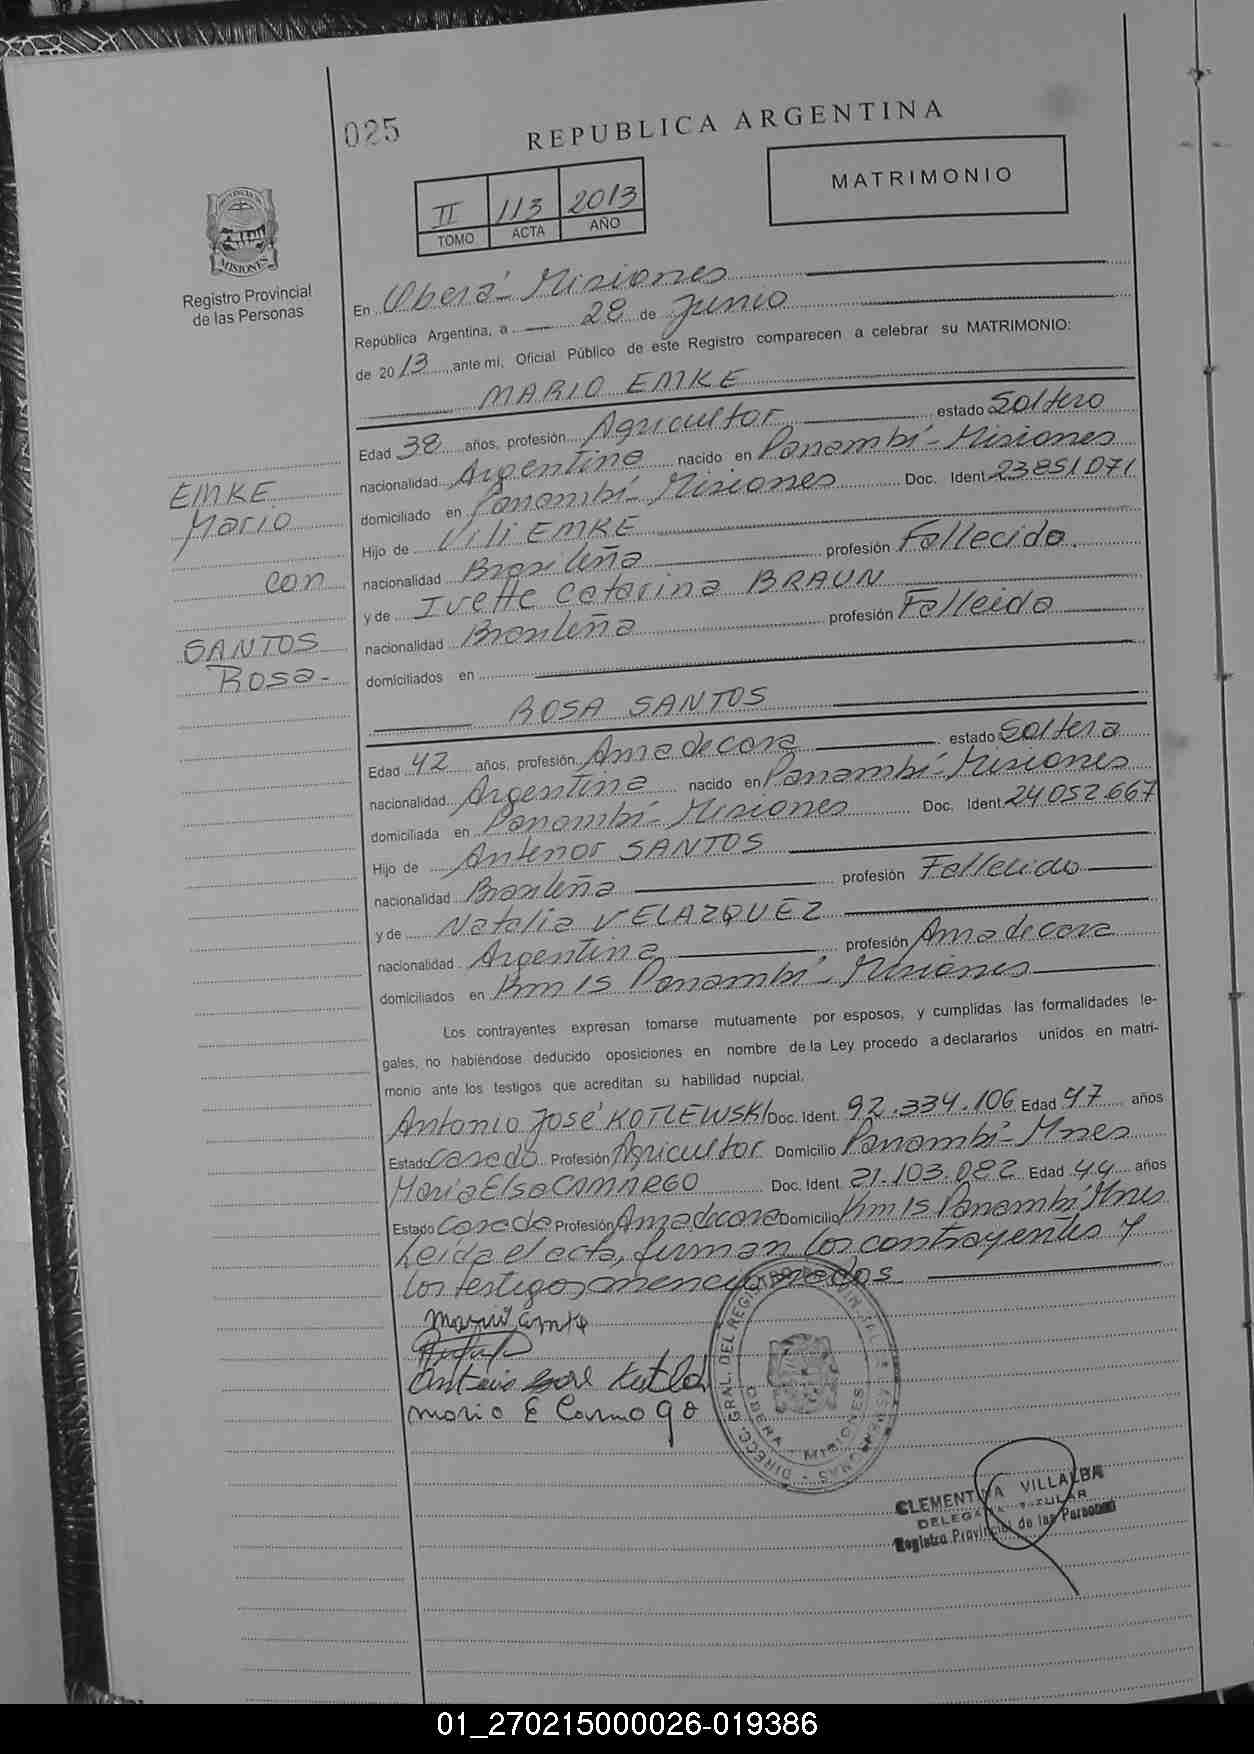 025
REPUBLICA ARGENTINA
MATRIMONIO
II 113 2013
TOMO ACTA AÑO
MISIONES
Registro Provincial
de las Personas
En Oberá - Misiones
República Argentina, a 28 de Junio
de 2013, ante mi, Oficial Público de este Registro comparecen a celebrar su MATRIMONIO:
MARIO EMKE
Edad 38 años, profesión Agricultor estado Soltero
nacionalidad Argentina nacido en Panambí - Misiones
domiciliado en Panambí - Misiones Doc. Ident 23851.071
Hijo de Vili EMKE
nacionalidad Brasileña profesión Fallecido.
y de Ivette Catarina BRAUN
nacionalidad Brasileña profesión Falleida
domiciliados en
EMKE
Mario
con
SANTOS
Rosa -
ROSA SANTOS
Edad 42 años, profesión Ama de casa estado Soltera
nacionalidad Argentina nacido en Panambí - Misiones
domiciliada en Panambí - Misiones Doc. Ident 24052.667
Hijo de Antenor SANTOS
nacionalidad Brasileña profesión Fallecido
y de Natalia VELAZQUEZ
nacionalidad Argentina profesión Ama de casa
domiciliados en Km 15 Panambí - Misiones
Los contrayentes expresan tomarse mutuamente por esposos, y cumplidas las formalidades le-
gales, no habiéndose deducido oposiciones en nombre de la Ley procedo a declararlos unidos en matri-
monio ante los testigos que acreditan su habilidad nupcial.
Antonio José KOTLEWSKI Doc. Ident. 92.334.106 Edad 47 años
Estado Casado Profesión Agricultor Domicilio Panambí - Mnes
Maria Elsa CAMARGO Doc. Ident. 21.103.082 Edad 44 años
Estado Casada Profesión Ama de casa Domicilio Km 15 Panambí Mnes
Leida el acta, firman los contrayentes y
los testigos mencionados
Mario Emke
Maria E Camargo
DIRECC. GRAL. DEL REGISTRO PROVINCIAL DE LAS PERSONAS
OBERA - MISIONES
CLEMENTINA VILLALBA
DELEGADA TITULAR
Registro Provincial de las Personas
01_270215000026-019386